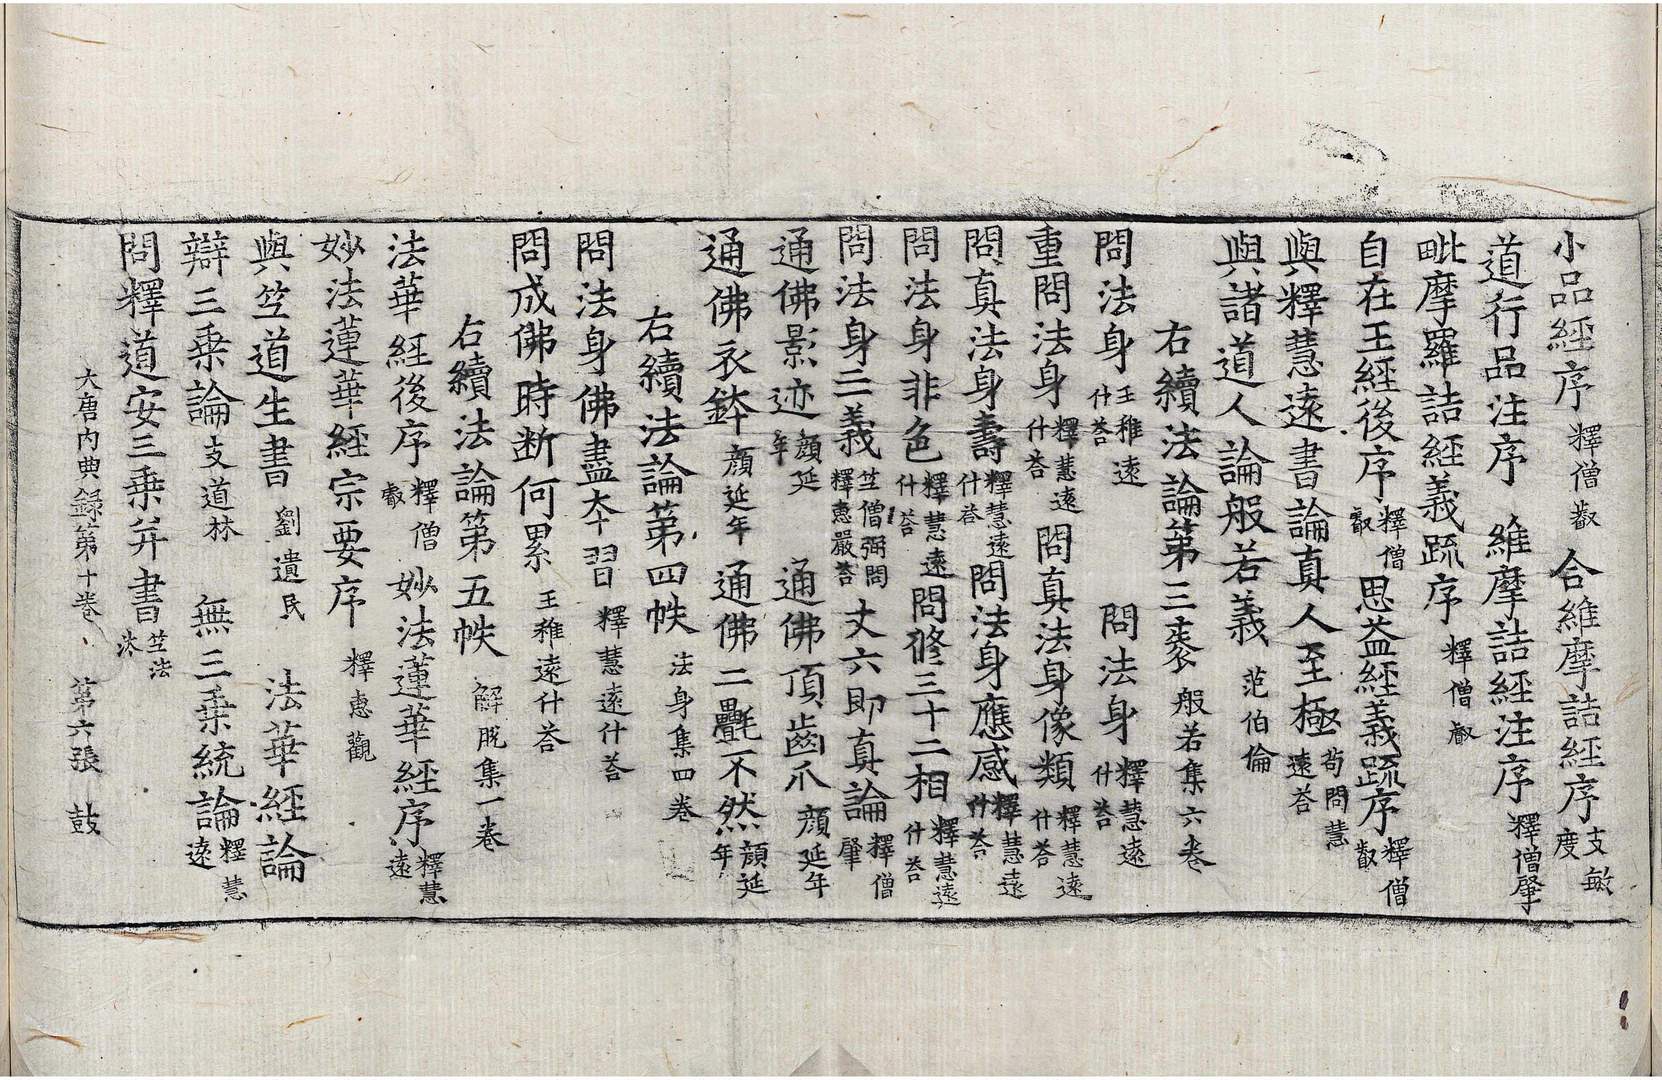 小品經序 釋僧叡 合維摩詰經序 支敏度
道行品注序 維摩詰經注序 釋僧肇
毗摩羅詰經義䟽序 釋僧叡
自在王經後序 釋僧叡 思益經義䟽序 釋僧叡
與釋慧遠書論真人至極 苟問慧遠荅
與諸道人論般若義 范伯倫
右續法論第三袠 般若集六卷
問法身 王稚遠什荅 問法身 釋慧遠什荅
重問法身 釋慧遠什荅 問真法身像類 釋慧遠什荅
問真法身壽 釋慧遠什荅 問法身應感 釋慧遠什荅
問法身非色 釋慧遠什荅 問修三十二相 釋慧遠什荅
問法身二義 竺僧弼問釋惠嚴荅 丈六即真論 釋僧肇
通佛影迹 顔延年 通佛頂齒爪 顔延年
通佛衣鉢 顔延年 通佛二㲲不然 顔延年
右續法論第四帙 法身集四卷
問法身佛盡夲習 釋慧遠什荅
問成佛時断何累 王稚遠什荅
右續法論第五帙 解脫集一卷
法華經後序 釋僧叡 妙法蓮華經序 釋慧遠
妙法蓮華經宗要序 釋惠觀
與竺道生書 劉遺民 法華經論
辯三乗論 支道林 無三乗統論 釋慧遠
問釋道安三乗并書 竺法汰
大唐内典録第十卷 第六張 鼓